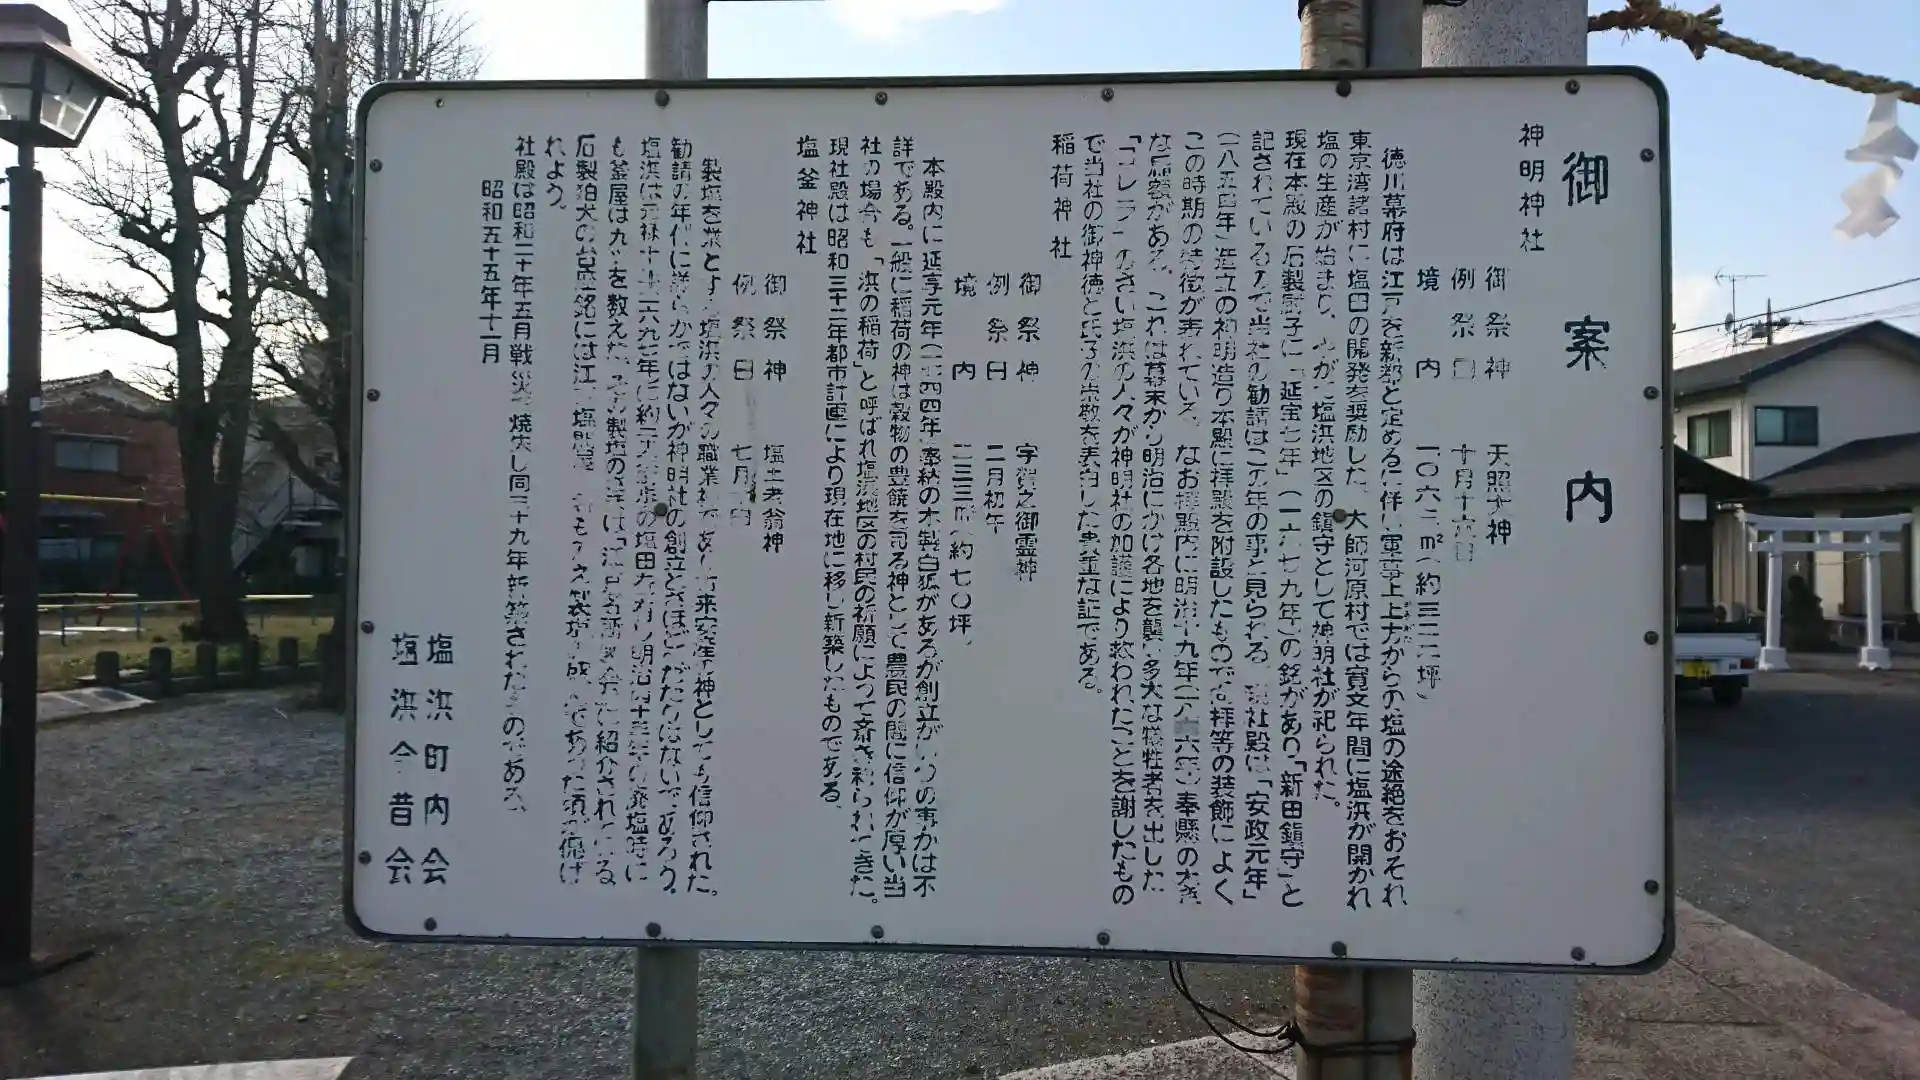 御案内
神明神社
御祭神 天照大神
例祭日 十月十六日
境内 一〇六二㎡(約三二二坪)
徳川幕府は江戸を新都と定めるに伴い軍事上上方からの塩の途絶をおそれ
東京湾諸村に塩田の開発を奨励した。大師河原村では寛文年間に塩浜が開かれ
塩の生産が始まり、やがて塩浜地区の鎮守として神明社が祀られた。
現在本殿の石製厨子に「延宝七年」(一六七九年)の銘があり「新田鎮守」と
記されているので当社の勧請はこの年の事と見られる。現社殿は「安政元年」
(一八五四年)造立の神明造り本殿に拝殿を附設したもので向拝等の装飾によく
この時期の特徴が表れている。なお拝殿内に明治十九年(一八八六年)奉懸の大き
な扁額がある。これは幕末から明治にかけ各地を襲い多大な犠牲者を出した
「コレラ」のさい塩浜の人々が神明社の加護により救われたことを謝したもの
で当社の御神徳と氏子の崇敬を表白した貴重な証である。
稲荷神社
御祭神 宇賀之御霊神
例祭日 二月初午
境内 二三三㎡(約七〇坪)
本殿内に延享元年(一七四四年)奉納の木製白狐があるが創立がいつの事かは不
詳である。一般に稲荷の神は穀物の豊饒を司る神として農民の間に信仰が厚い当
社の場合も「浜の稲荷」と呼ばれ塩浜地区の村民の祈願によって斎き祀られてきた。
現社殿は昭和三十二年都市計画により現在地に移し新築したものである。
塩釜神社
御祭神 塩土老翁神
例祭日 七月 日
製塩を業とする塩浜の人々の職業神であり古来安産の神としても信仰された。
勧請の年代は詳らかではないが神明社の創立とさほどへだたりはないであろう。
塩浜は元禄十 六九七年に約 の塩田を有し明治四十三年の廃塩時に
も釜屋は九つを数えた。その製塩の様は「江戸名所図会」に紹介されている
石製狛犬の台座銘には江戸塩問屋 製塩 盛 であった頃が偲ば
れよう。
社殿は昭和二十年五月戦災で焼失し同三十九年新築されたものである。
昭和五十五年十一月
塩浜町内会
塩浜今昔会